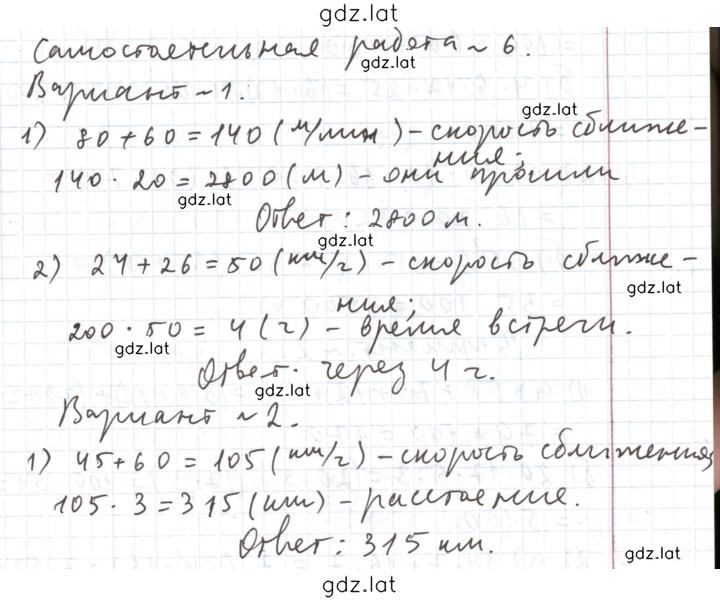 gdz.lat
Самостоятельная работа ~ 6.
gdz.lat
Вариант ~ 1.
gdz.lat
1) 80 + 60 = 140 (м/мин) - скорость сближе-
ния;
140 · 20 = 2800 (м) - они прошли
gdz.lat
Ответ: 2800 м.
gdz.lat
2) 24 + 26 = 50 (км/ч) - скорость сближе-
gdz.lat
ния;
200 · 50 = 4 (ч) - время встречи.
gdz.lat
Ответ. через 4 ч.
gdz.lat
Вариант ~ 2.
1) 45 + 60 = 105 (км/ч) - скорость сближения;
105 · 3 = 315 (км) - расстояние.
Ответ: 315 км.
gdz.lat
gdz.lat